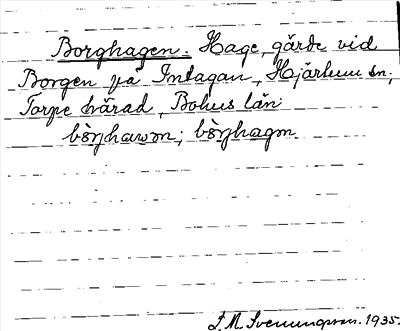 Borghagen. Hage, gärde vid
Borgen på Intagan, Hjärtum sn;
Torpe härad, Bohus län
bòrjhawɷn; bòrjhagɷn
T. M. Svenungsson. 1935.